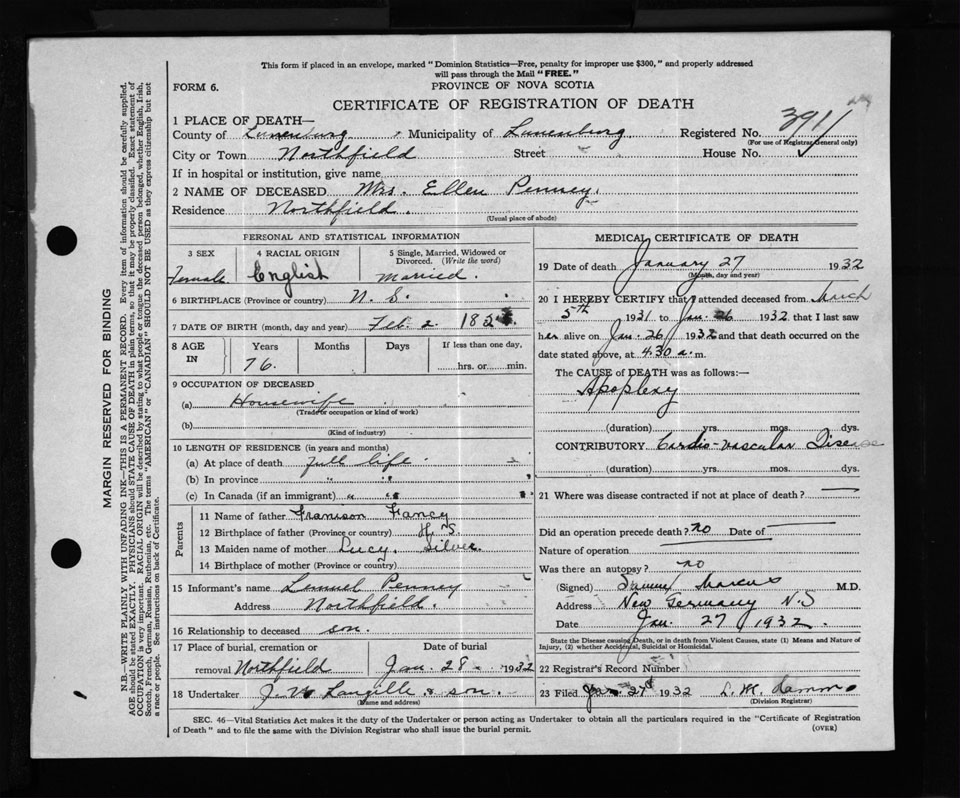 This form if placed in an envelope, marked "Dominion Statistics—Free, penalty for improper use $300," and properly addressed
will pass through the Mail "FREE."
FORM 6.
PROVINCE OF NOVA SCOTIA
CERTIFICATE OF REGISTRATION OF DEATH
1 PLACE OF DEATH—
County of Lunenburg Municipality of Lunenburg Registered No. 391
(For use of Registrar General only)
City or Town Northfield Street House No.
If in hospital or institution, give name
2 NAME OF DECEASED Mrs. Ellen Penney.
Residence Northfield.
(Usual place of abode)
PERSONAL AND STATISTICAL INFORMATION
3 SEX 4 RACIAL ORIGIN 5 Single, Married, Widowed or Divorced. (Write the word)
Female English Married.
6 BIRTHPLACE (Province or country) N. S.
7 DATE OF BIRTH (month, day and year) Feb. 2. 185
8 AGE IN Years Months Days If less than one day,
76. hrs. or min.
9 OCCUPATION OF DECEASED
(a) Housewife
(Trade or occupation or kind of work)
(b)
(Kind of industry)
10 LENGTH OF RESIDENCE (in years and months)
(a) At place of death full life
(b) In province " "
(c) In Canada (if an immigrant) " "
Parents
11 Name of father Francy
12 Birthplace of father (Province or country) N. S.
13 Maiden name of mother Lucy. Silver.
14 Birthplace of mother (Province or country)
15 Informant's name Lemuel Penney
Address Northfield.
16 Relationship to deceased son.
17 Place of burial, cremation or removal Northfield Date of burial Jan. 28 1932
18 Undertaker J. W. Langille & son.
(Name and address)
MEDICAL CERTIFICATE OF DEATH
19 Date of death January 27 1932
(Month, day and year)
20 I HEREBY CERTIFY that I attended deceased from March
5th 1931 to Jan. 26 1932 that I last saw
her alive on Jan. 26 1932 and that death occurred on the
date stated above, at 4.30 a. m.
The CAUSE of DEATH was as follows:—
Apoplexy
(duration) yrs. mos. dys.
CONTRIBUTORY Cardio-vascular Disease
(duration) yrs. mos. dys.
21 Where was disease contracted if not at place of death?
Did an operation precede death? no Date of
Nature of operation
Was there an autopsy? no
(Signed) Marcus M.D.
Address New Germany N.S
Date Jan. 27 1932.
State the Disease causing Death, or in death from Violent Causes, state (1) Means and Nature of
Injury, (2) whether Accidental, Suicidal or Homicidal.
22 Registrar's Record Number
23 Filed Jan. 27 1932 L. M.
(Division Registrar)
SEC. 46—Vital Statistics Act makes it the duty of the Undertaker or person acting as Undertaker to obtain all the particulars required in the "Certificate of Registration
of Death" and to file the same with the Division Registrar who shall issue the burial permit.
(OVER)
MARGIN RESERVED FOR BINDING
N.B.—WRITE PLAINLY WITH UNFADING INK—THIS IS A PERMANENT RECORD. Every item of information should be carefully supplied.
AGE should be stated EXACTLY. PHYSICIANS should STATE CAUSE OF DEATH in plain terms, so that it may be properly classified. Exact statement of
OCCUPATION is very important. RACIAL ORIGIN will be described by stating to what people or tongue the deceased person belonged, whether English, Irish,
Scotch, French, German, Russian, Ruthenian, etc. The terms "AMERICAN" or "CANADIAN" SHOULD NOT BE USED as they express citizenship but not
a race or people. See instructions on back of Certificate.